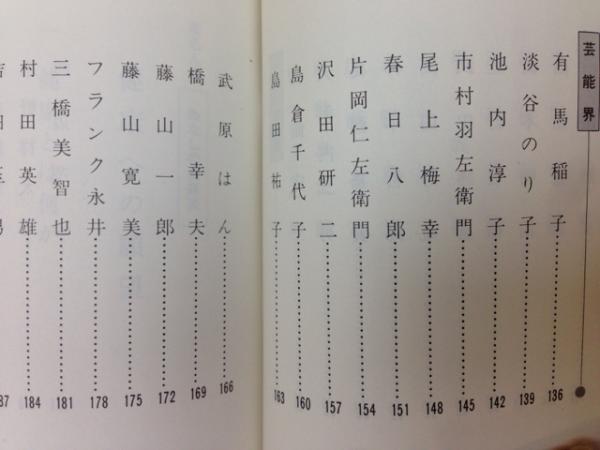 芸能界
有馬稲子 136
淡谷のり子 139
池内淳子 142
市村羽左衛門 145
尾上梅幸 148
春日八郎 151
片岡仁左衛門 154
沢田研二 157
島倉千代子 160
島田祐子 163
武原はん 166
橋幸夫 169
藤山一郎 172
藤山寛美 175
フランク永井 178
三橋美智也 181
村田英雄 184